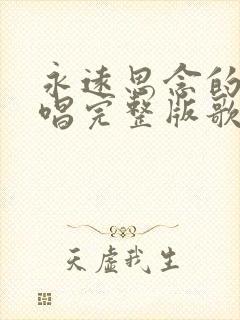 永远思念的
唱完整版歌
天虚我生